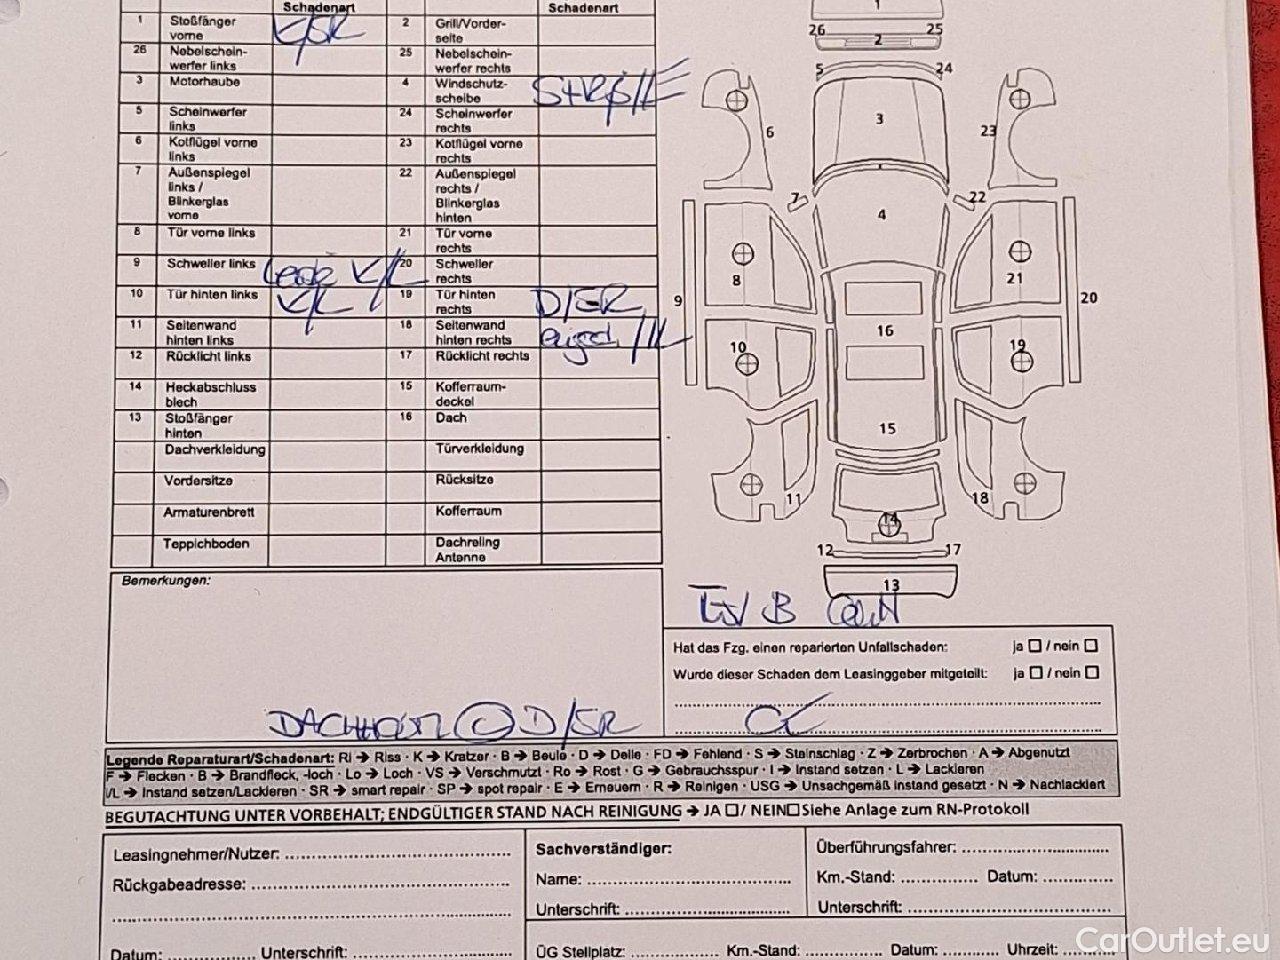 Schadenart Schadenart
1 Stoßfänger vorne K/SR 2 Grill/Vorder-seite
26 Nebelschein-werfer links 25 Nebelschein-werfer rechts
3 Motorhaube 4 Windschutz-scheibe
5 Scheinwerfer links 24 Scheinwerfer rechts
6 Kotflügel vorne links 23 Kotflügel vorne rechts
7 Außenspiegel links / Blinkerglas vorne 22 Außenspiegel rechts / Blinkerglas hinten
8 Tür vorne links 21 Tür vorne rechts
9 Schweller links K/L 20 Schweller rechts
10 Tür hinten links K/L 19 Tür hinten rechts D/SR
11 Seitenwand hinten links 18 Seitenwand hinten rechts
12 Rücklicht links 17 Rücklicht rechts
14 Heckabschluss blech 15 Kofferraum-deckel
13 Stoßfänger hinten 16 Dach
Dachverkleidung Türverkleidung
Vordersitze Rücksitze
Armaturenbrett Kofferraum
Teppichboden Dachreling Antenne
1
26 25
2
5 24
3
6 23
7 22
4
8 21
9 20
16
10 19
15
11 18
14
12 17
13
Bemerkungen:
Hat das Fzg. einen reparierten Unfallschaden: ja / nein
Wurde dieser Schaden dem Leasinggeber mitgeteilt: ja / nein
D/SR
Legende Reparaturart/Schadenart: RI → Riss · K → Kratzer · B → Beule · D → Delle · FD → Fehlend · S → Steinschlag · Z → Zerbrochen · A → Abgenutzt
F → Flecken · B → Brandfleck, -loch · Lo → Loch · VS → Verschmutzt · Ro → Rost · G → Gebrauchsspur · I → Instand setzen · L → Lackieren
/L → Instand setzen/Lackieren · SR → smart repair · SP → spot repair · E → Erneuern · R → Reinigen · USG → Unsachgemäß instand gesetzt · N → Nachlackiert
BEGUTACHTUNG UNTER VORBEHALT; ENDGÜLTIGER STAND NACH REINIGUNG → JA / NEIN Siehe Anlage zum RN-Protokoll
Leasingnehmer/Nutzer: Sachverständiger: Überführungsfahrer:
Rückgabeadresse: Name: Km.-Stand: Datum:
Unterschrift: Unterschrift:
Datum: Unterschrift: ÜG Stellplatz: Km.-Stand: Datum: Uhrzeit:
CarOutlet.eu